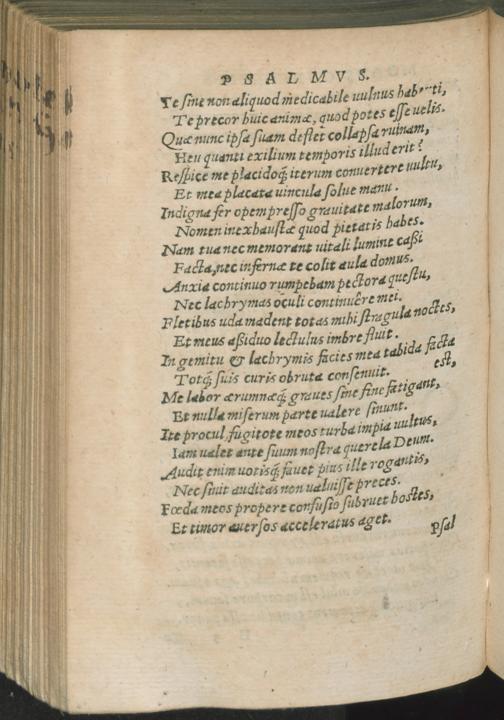 PSALMVS.
Te sine non aliquod medicabile uulnus habenti,
Te precor huic animæ, quod potes esse uelis.
Quæ nunc ipsa suam deflet collapsa ruinam,
Heu quanti exilium temporis illud erit?
Respice me placidoq́; iterum conuertere uultu,
Et mea placata uincula solue manu.
Indigna fer opem presso grauitate malorum,
Nomen inexhaustæ quod pietatis habes.
Nam tua nec memorant uitali lumine caßi
Facta, nec infernæ te colit aula domus.
Anxia continuo rumpebam pectora questu,
Nec lachrymas oculi continuêre mei.
Fletibus uda madent totas mihi stragula noctes,
Et meus aßiduo lectulus imbre fluit.
In gemitu & lachrymis facies mea tabida facta
est,
Totq́; suis curis obruta consenuit.
Me labor ærumnæq́; graues sine fine fatigant,
Et nulla miserum parte ualere sinunt.
Ite procul, fugitote meos turba impia uultus,
Iam ualet ante suum nostra querela Deum.
Audit enim uotisq́; fauet pius ille rogantis,
Nec sinit auditas non ualuisse preces.
Fœda meos propere confusio subruet hostes,
Et timor auersos acceleratus aget.
Psal